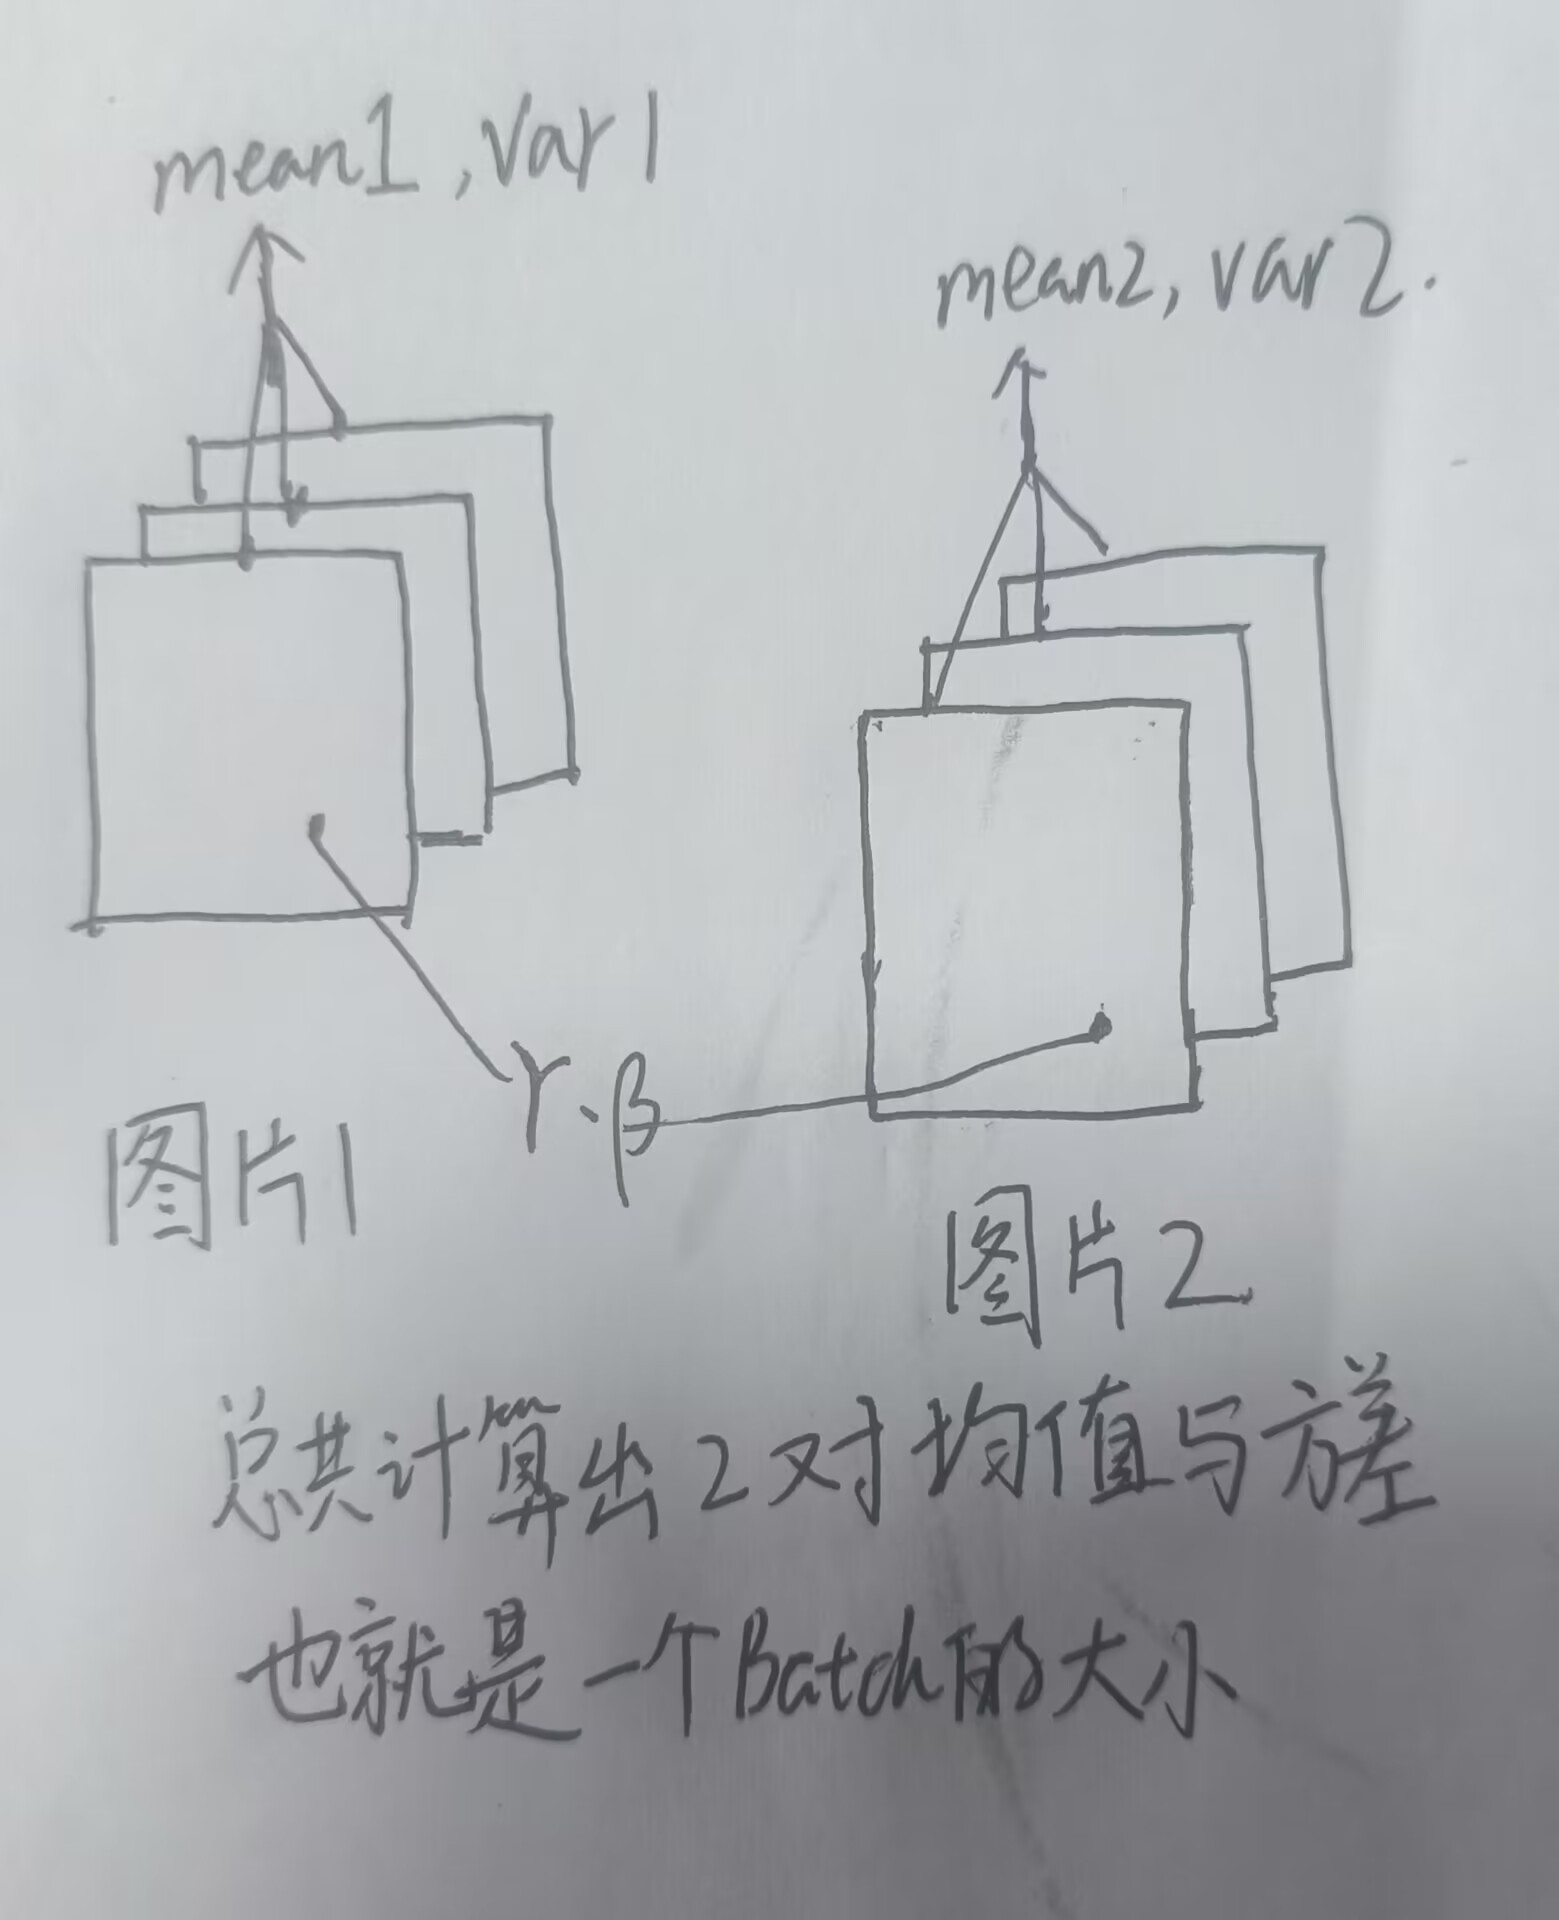 mean1,var1
mean2,var2.
γ、β
图片1
图片2
总共计算出2对均值与方差
也就是一个Batch的大小